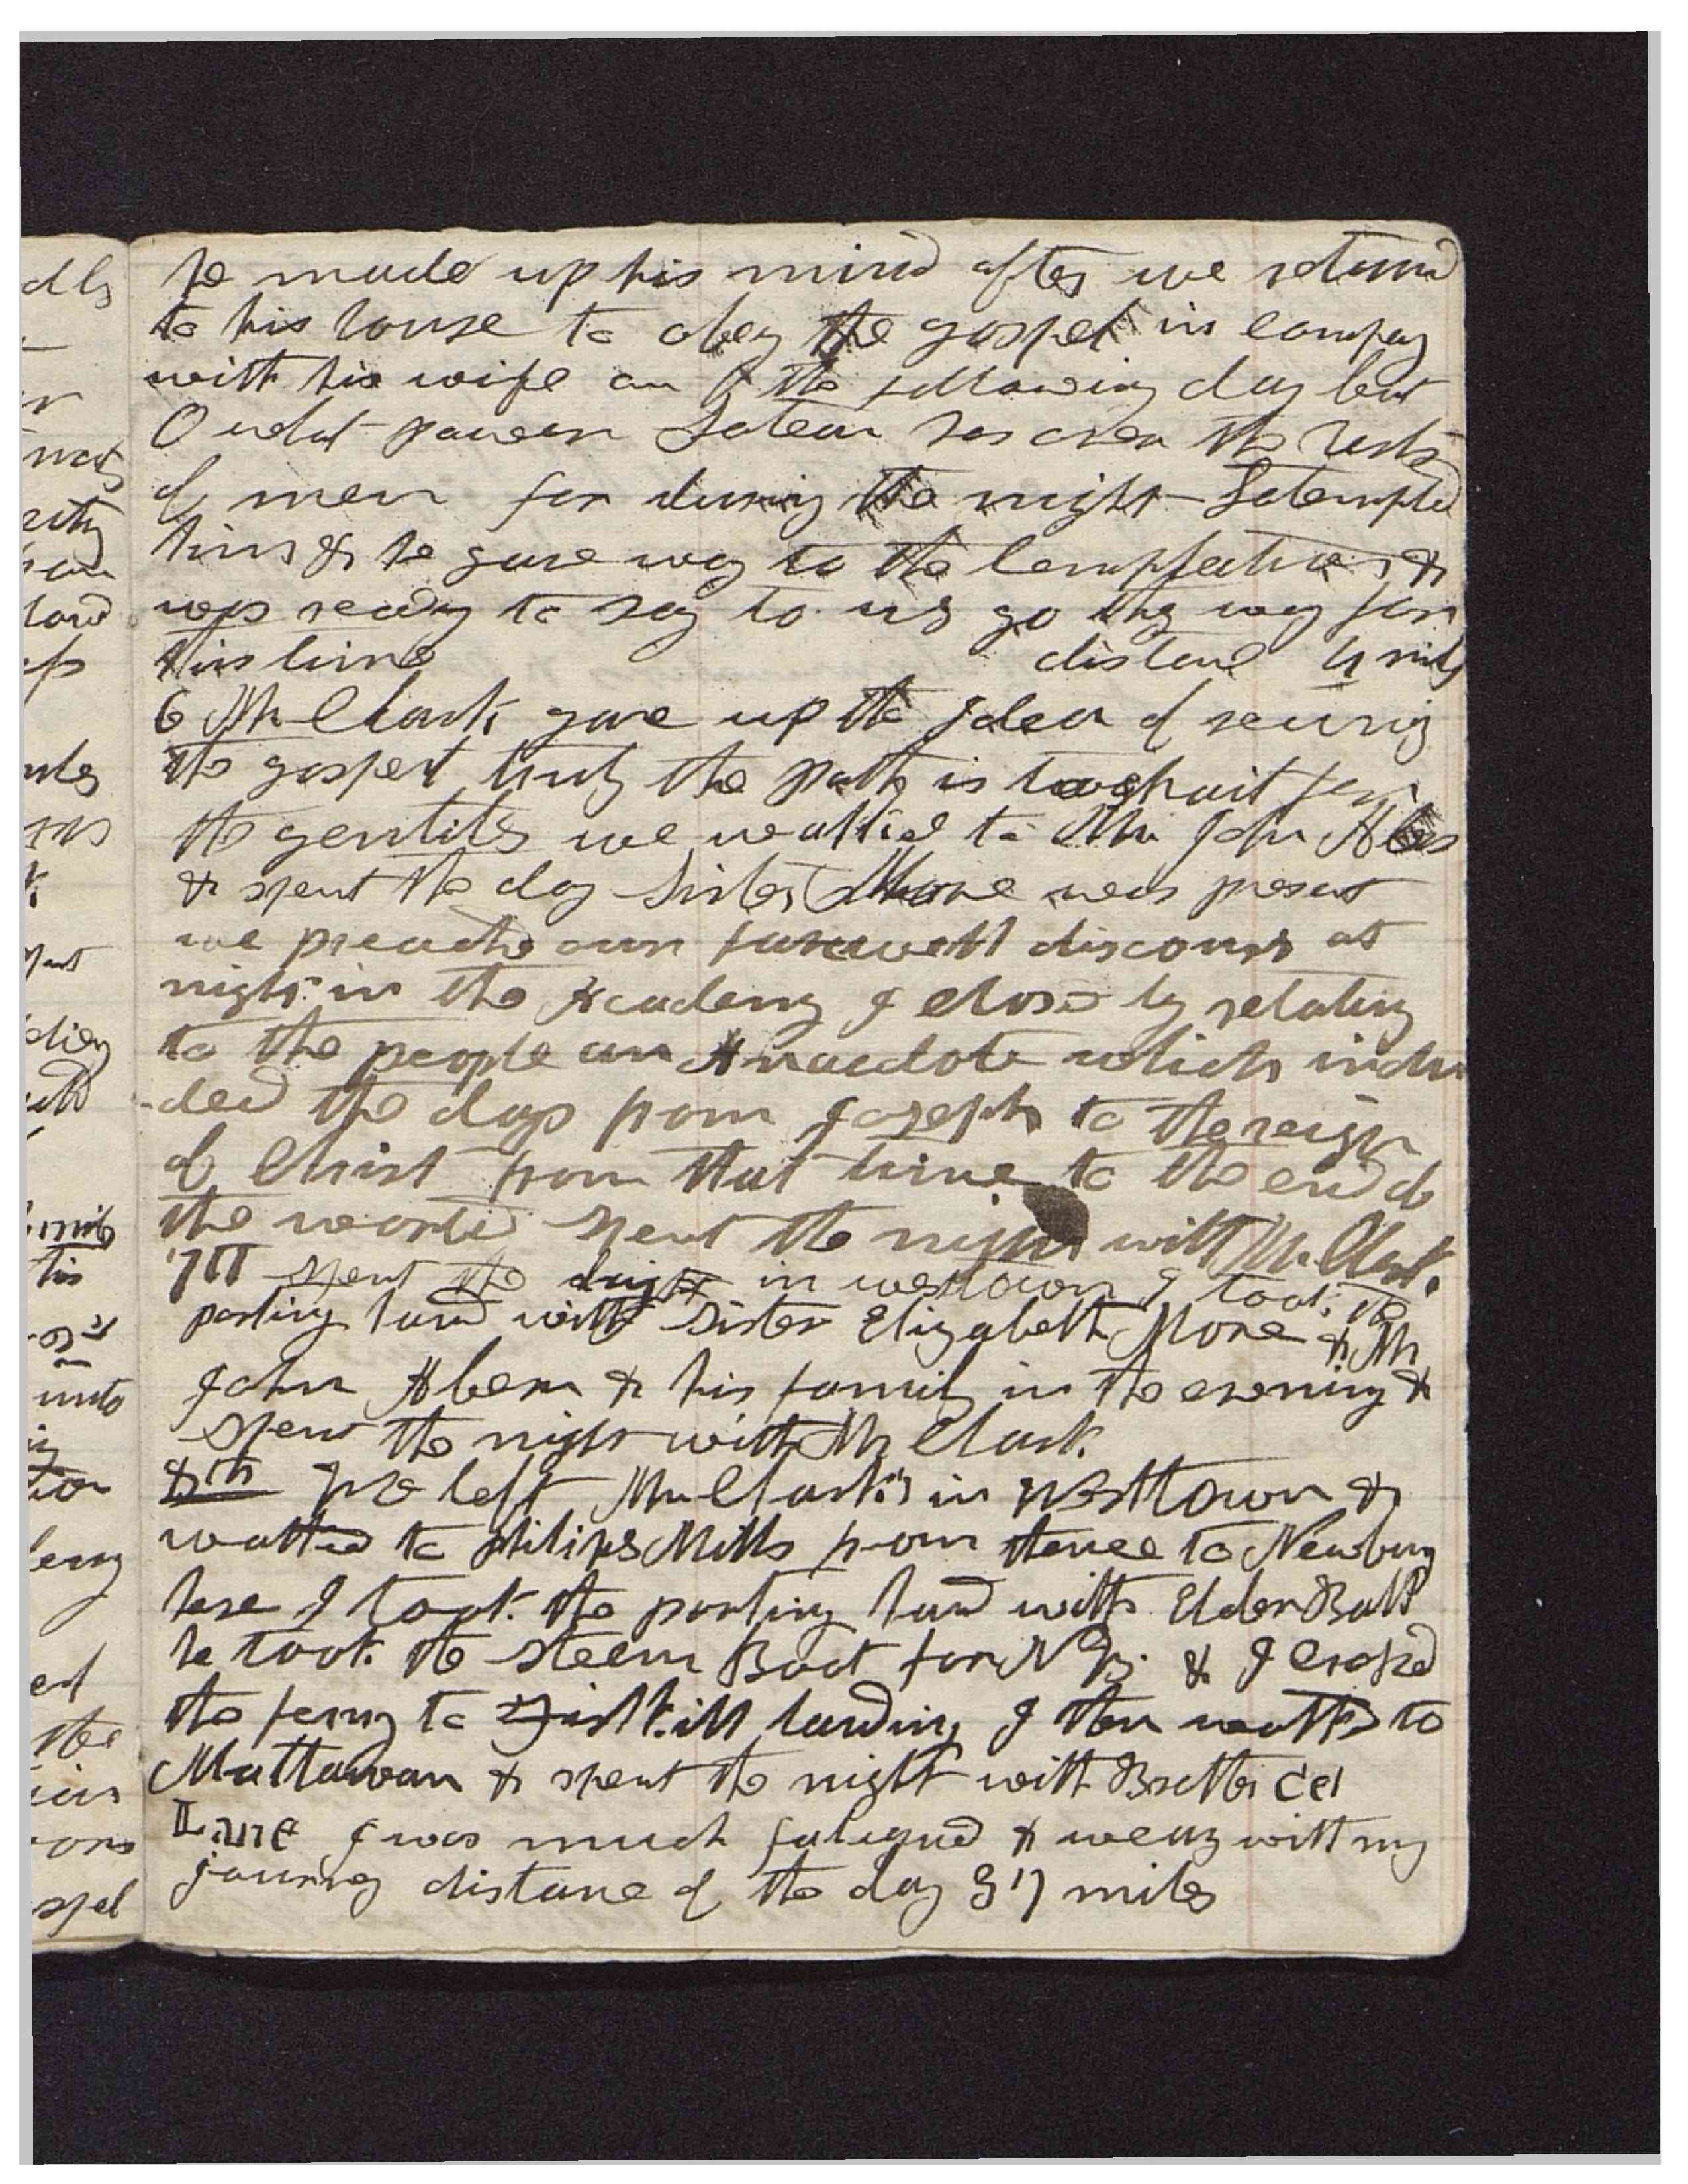 he made up his mind after we returnd
to his house to obey the gospel in compay
with his wife on the following day but
O what power Satean has over the harts
of men for during the night Sa tempted
him & he gave way to the temptation &
was ready to say to us go thy way for
this time distanc 4 mils
6 Mr Clark gave up the Idea of receivig
the gospel truly the path is straight for
the gentils we walked to Mr John Abers
& spent the day Sister More was present
we preachd our farewell discours at
night in the Academy I closed by relating
to the people an Anacdote which inclu
-ded the days from Joseph to the reign
of Christ from that time to the end of
the world spent the night with Mr Clark.
7th spent the day in westtown I took the
parting hand with Sister Elizabeth More & Mr
John Abers & his family in the evening &
spent the night with Mr Clark
8th We left Mr Clark's in Westtown &
walked to Philips Mills from thence to Newburg
here I took the parting hand with Elder Ball
he took the Steem Boat for N Y. & I crosed
the ferry to Fishkill landing I then walked to
Mattawan & spent the night with Brother
Lane I was much fatigued & weary with my
journey distance of the day 37 miles